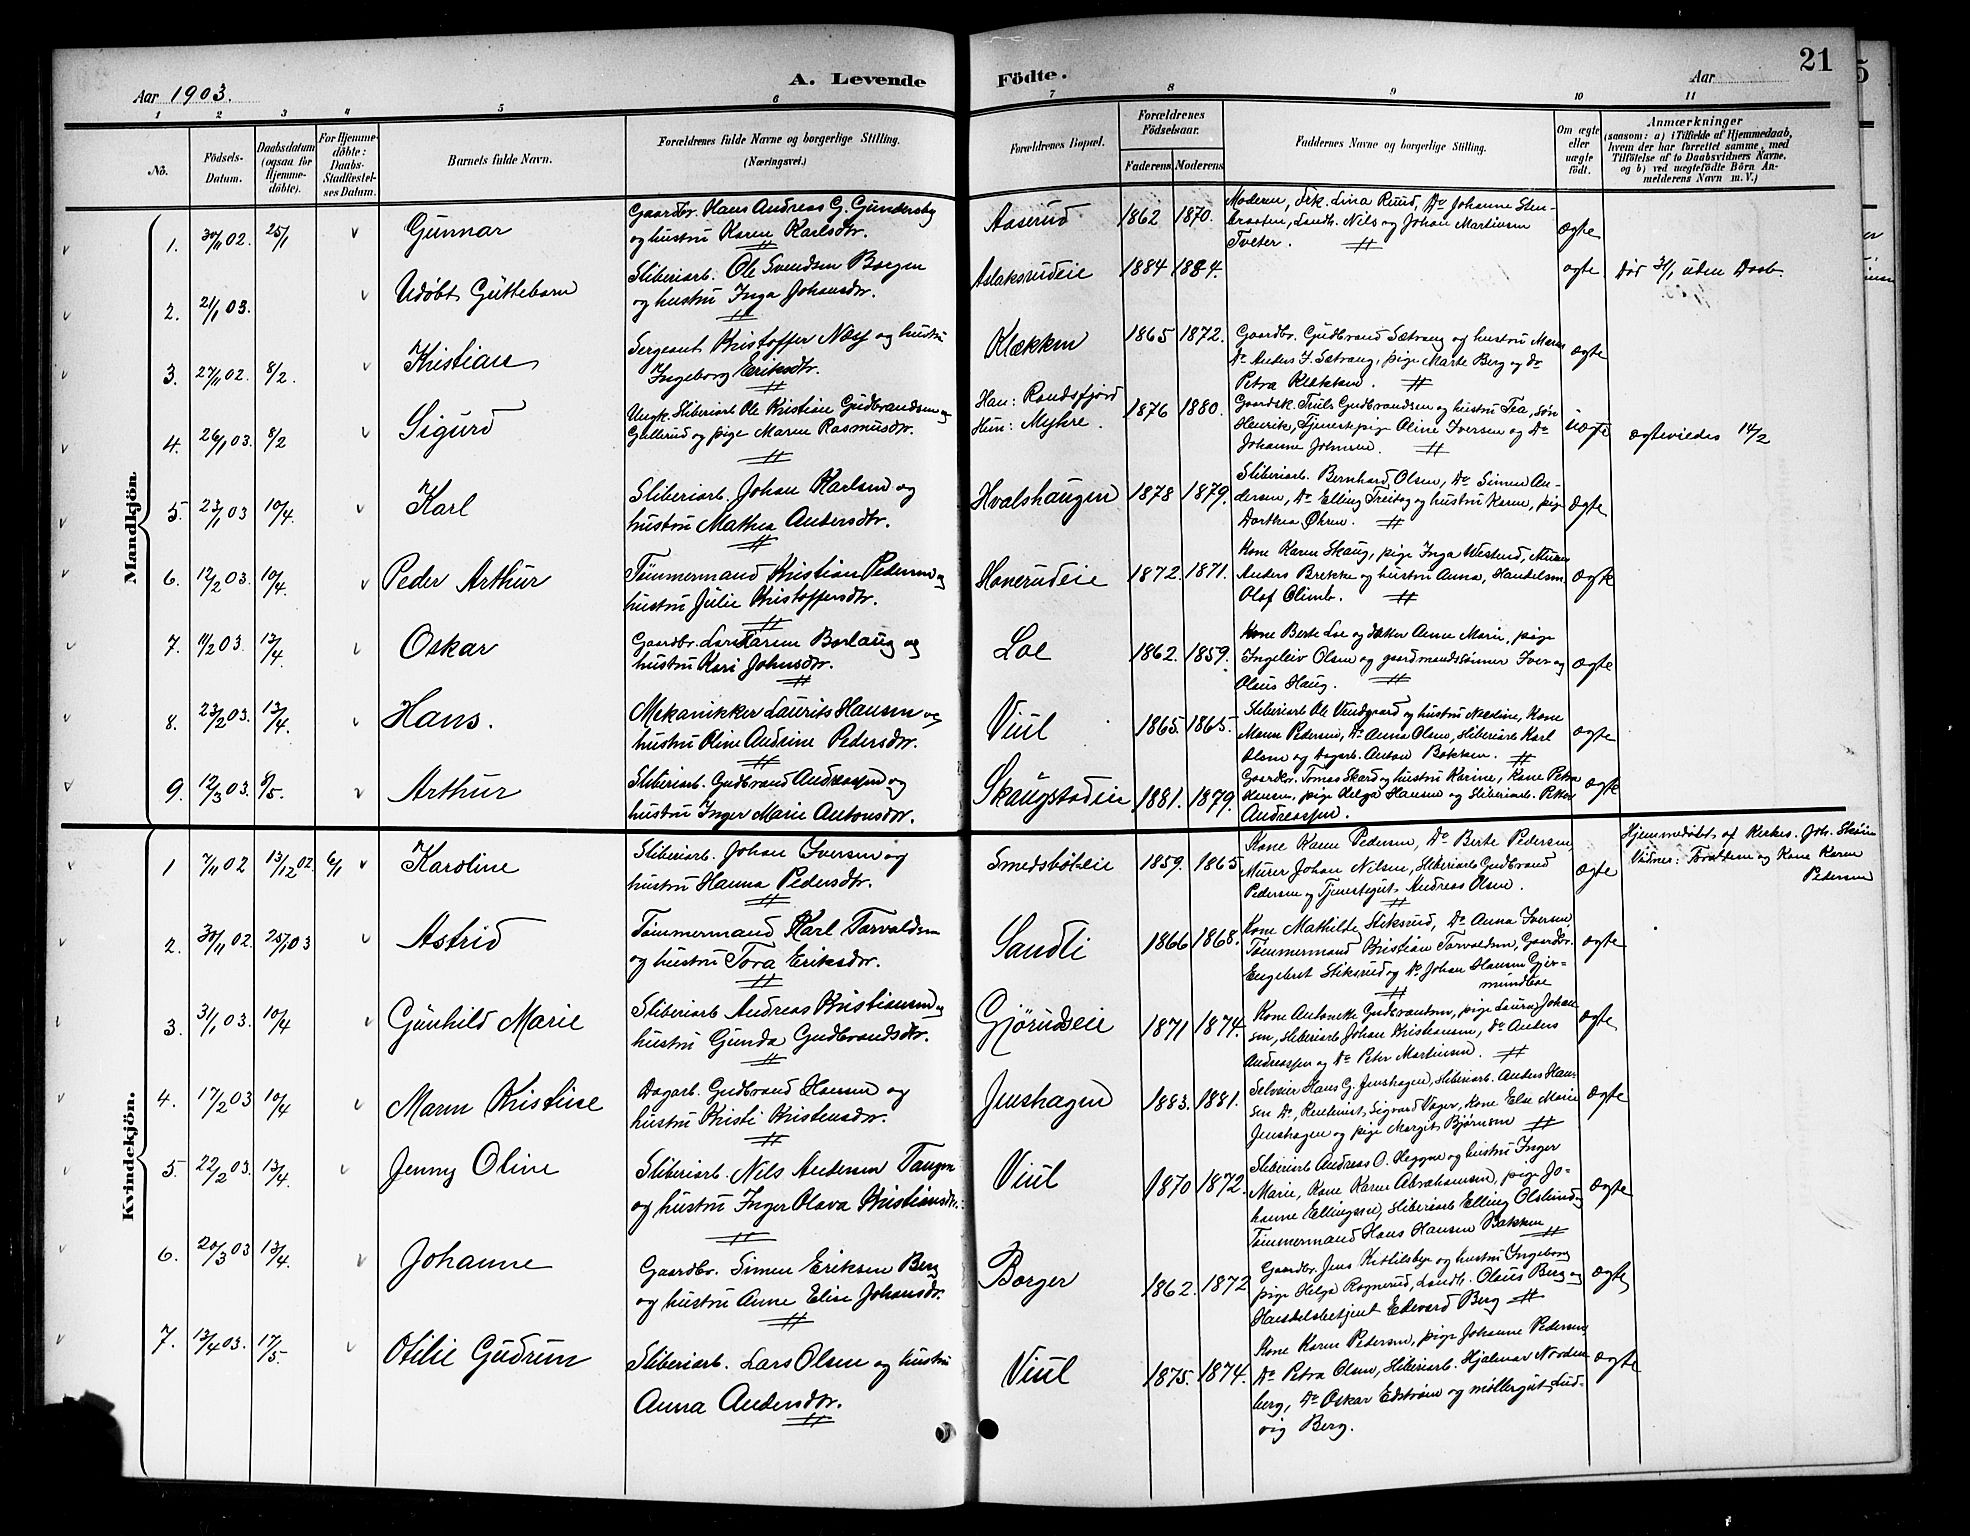 21
A. Levende Födte.
Aar 1903.
Aar
1 2 3 4 5 6 7 8 9 10 11
No.
Födsels-Datum.
Daabsdatum (ogsaa for Hjemme-döbte).
For Hjemme-döbte: Daabs-Stadfæstel-ses Datum.
Barnets fulde Navn.
Forældrenes fulde Navne og borgerlige Stilling.
(Næringsvei.)
Forældrenes Bopæl.
Forældrenes Födselsaar.
Faderens. Moderens.
Faddernes Navne og borgerlige Stilling.
Om ægte eller uægte født.
Anmærkninger
(saasom: a) i Tilfælde af Hjemmedaab,
hvem der har forrettet samme, med
Tilföielse af to Daabsvidners Navne,
og b) ved uægtefödte Börn An-
melderens Navn m. V.)
Mandkjön.
1. 30/11 02. 25/1 Gunnar
Gaardbr. Hans Andreas G. Gundersby
og hustru Karen Karlsdtr.
Aaserud 1862 1870.
Moderen, Frk. Lina Ruud, Do Johanne Sten-
braaten, Landh. Nils og Johan Martinsen
Tveter.
ægte
2. 21/1 03. Udøbt Guttebarn
Sliberiarb. Ole Svendsen Borgen
og hustru Inga Johansdtr.
Aslaksrudeie 1884 1884.
ægte
Død 31/1 uden Daab.
3. 27/11 02. 8/2. Kristian
Sergeant Kristoffer Næss og hustru
Ingeborg Eriksdtr.
Klækken 1865 1872.
Gaardbr. Gudbrand Sætrang og hustru Maren
Do Anders J. Sætrang, pige Marte Berg og do
Petra Klækken.
ægte
4. 26/1 03. 8/2 Sigurd
Ungk. Sliberiarb Ole Kristian Gudbrandsen
Gullerud og pige Maren Rasmusdtr.
Han: Randsfjord
Hun: Myhre.
1876 1880.
Gaardsk. Truls Gudbrandsen og hustru Tea, søn
Henrik, Tjenestpige Oline Iversen og Do
Johanne Johnsen.
uægte
ægtevieldes 14/2
5. 23/1 03 10/4. Karl
Sliberiarb. Johan Karlsen og
hustru Mathea Andersdtr.
Hvalshaugen 1878 1879.
Sliberiarb. Bernhard Olsen, Do Simen An-
dersen, Do Elling Freitag og hustru Karen, pige
Dorthea Øhren.
ægte
6. 12/2 03. 10/4. Peder Arthur
Tømmermand Kristian Pedersen og
hustru Julie Kristoffersdtr.
Honerudeie 1872. 1871.
Kone Karen Skaug, pige Inga Westerud, Murer
Anders Brekke og hustru Anna, Handelsm.
Olaf Climb.
ægte
7. 11/2 03. 13/4. Oskar
Gaardbr. Lars Larsen Borlaug og
hustru Kari Johnsdtr.
Loe 1862. 1859.
Kone Berte Loe og datter Anne Marie, pige
Ingeleiv Olsen og gaardmandssønner Iver og
Olaus Haug.
ægte
8. 23/2 03. 13/4. Hans.
Mekanikker Laurits Hansen og
hustru Oline Andrine Pedersdtr.
Viul 1865. 1865.
Sliberiarb Ole Vendgaard og hustru Neldine, Kone
Maren Pedersen, Do Anna Olsen, Sliberiarb Karl
Olsen og Dagarb. Anton Bakken.
ægte
9. 12/3 03. 8/5. Arthur
Sliberiarb. Gudbrand Andreassen og
hustru Inger Marie Antonsdtr.
Skaugstadeie 1881. 1879.
Gaardbr. Tomas Skard og hustru Karine, Kone Petra
Hansen, pige Helga Hansen og Sliberiarb. Peter
Andreassen.
ægte
Kvindekjön.
1 7/11 02 13/12 02. 6/1 Karoline
Sliberiarb. Johan Iversen og
hustru Hanna Pedersdtr.
Smedsbøleie 1859. 1865
Kone Karen Pedersen, Do Berte Pedersen,
Murer Johan Nilsen, Sliberiarb Gudbrand
Pedersen og Tjenestegut Andreas Olsen.
ægte
Hjemmedøbt af Kirkes. Joh. Skøien
Vidner: Forældrene og Kone Karen
Pedersen
2. 30/11 02. 25/1 03 Astrid
Tømmermand Karl Torvaldsen
og hustru Tora Eriksdtr.
Sandli 1866 1868.
Kone Mathilde Stiksrud, Do Anna Iversen,
Tømmermand Kristian Torvaldsen, Gaardbr.
Engebret Stiksrud og Do Johan Hansen Gjer-
mundboe
ægte
3. 31/1 03. 10/4 Gunhild Marie
Sliberiarb Andreas Kristiansen og
hustru Gunda Gudbrandsdtr.
Gjørudseie 1871 1874.
Kone Antonette Gudbrandsen, pige Laura Johan-
sen, Sliberiarb Johan Kristiansen, do Anders
Andreassen og Do Peter Martinsen.
ægte
4. 17/2 03 10/4 Maren Kristine
Dagarb. Gudbrand Hansen og
hustru Kristi Kristensdtr.
Jenshagen 1883. 1881.
Selveier Hans G. Jenshagen, Sliberiarb. Anders Han-
sen Do, Sigvard Vager, Kone Else Marie
Jenshagen og pige Margit Bjørnsen
ægte
5. 22/2 03. 13/4. Jenny Oline
Sliberiarb. Nils Andersen Tangen
og hustru Inger Olava Kristiansdtr.
Viul 1870 1872.
Sliberiarb Andreas O. Heggen og hustru Inger
Marie, Kone Karen Abrahamsen, pige Jo-
hanne Ellingsen, Sliberiarb Elling Olslund og
Tømmermand Hans Hansen Bakken
ægte
6. 20/3 03 13/4. Johanne
Gaardbr. Simen Eriksen Berg
og hustru Anne Elise Johansdtr.
Borger 1862. 1872
Gaardbr. Jens Kittilsbye og hustru Ingeborg
pige Helga Rognerud, Landh. Olaus Berg og
Handelsbetjent Edevard Berg
ægte
7. 13/4 03. 17/5. Otilie Gudrun
Sliberiarb. Lars Olsen og hustru
Anna Andersdtr.
Viul 1875. 1874.
Kone Karen Pedersen, pige Johanne Pedersen,
Do Petra Olsen, Sliberiarb. Hjalmar Norden-
berg, Do Oskar Edstrøm og møllergut Lud-
vig Berg.
ægte